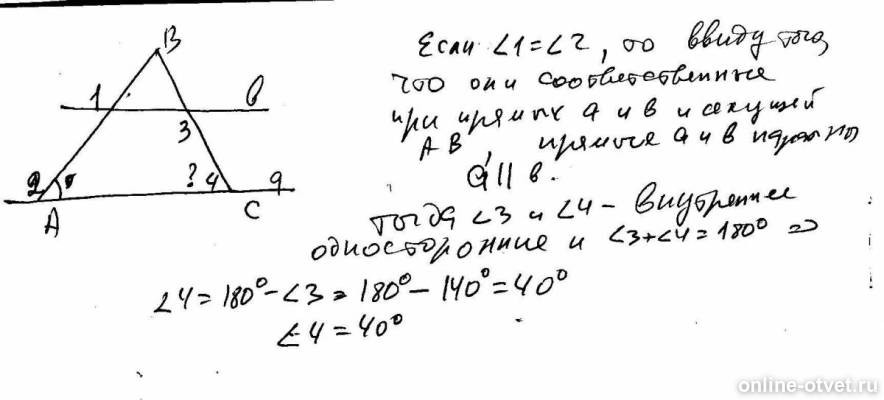 B
1
в
3
2
? 4
а
A
C
Если ∠1=∠2, то ввиду того,
что они соответственные
при прямых а и в и секущей
AB, прямые а и в
а || в.
тогда ∠3 и ∠4 - внутренние
односторонние и ∠3+∠4=180° =>
∠4 = 180° - ∠3 = 180° - 140° = 40°
∠4 = 40°
online-otvet.ru